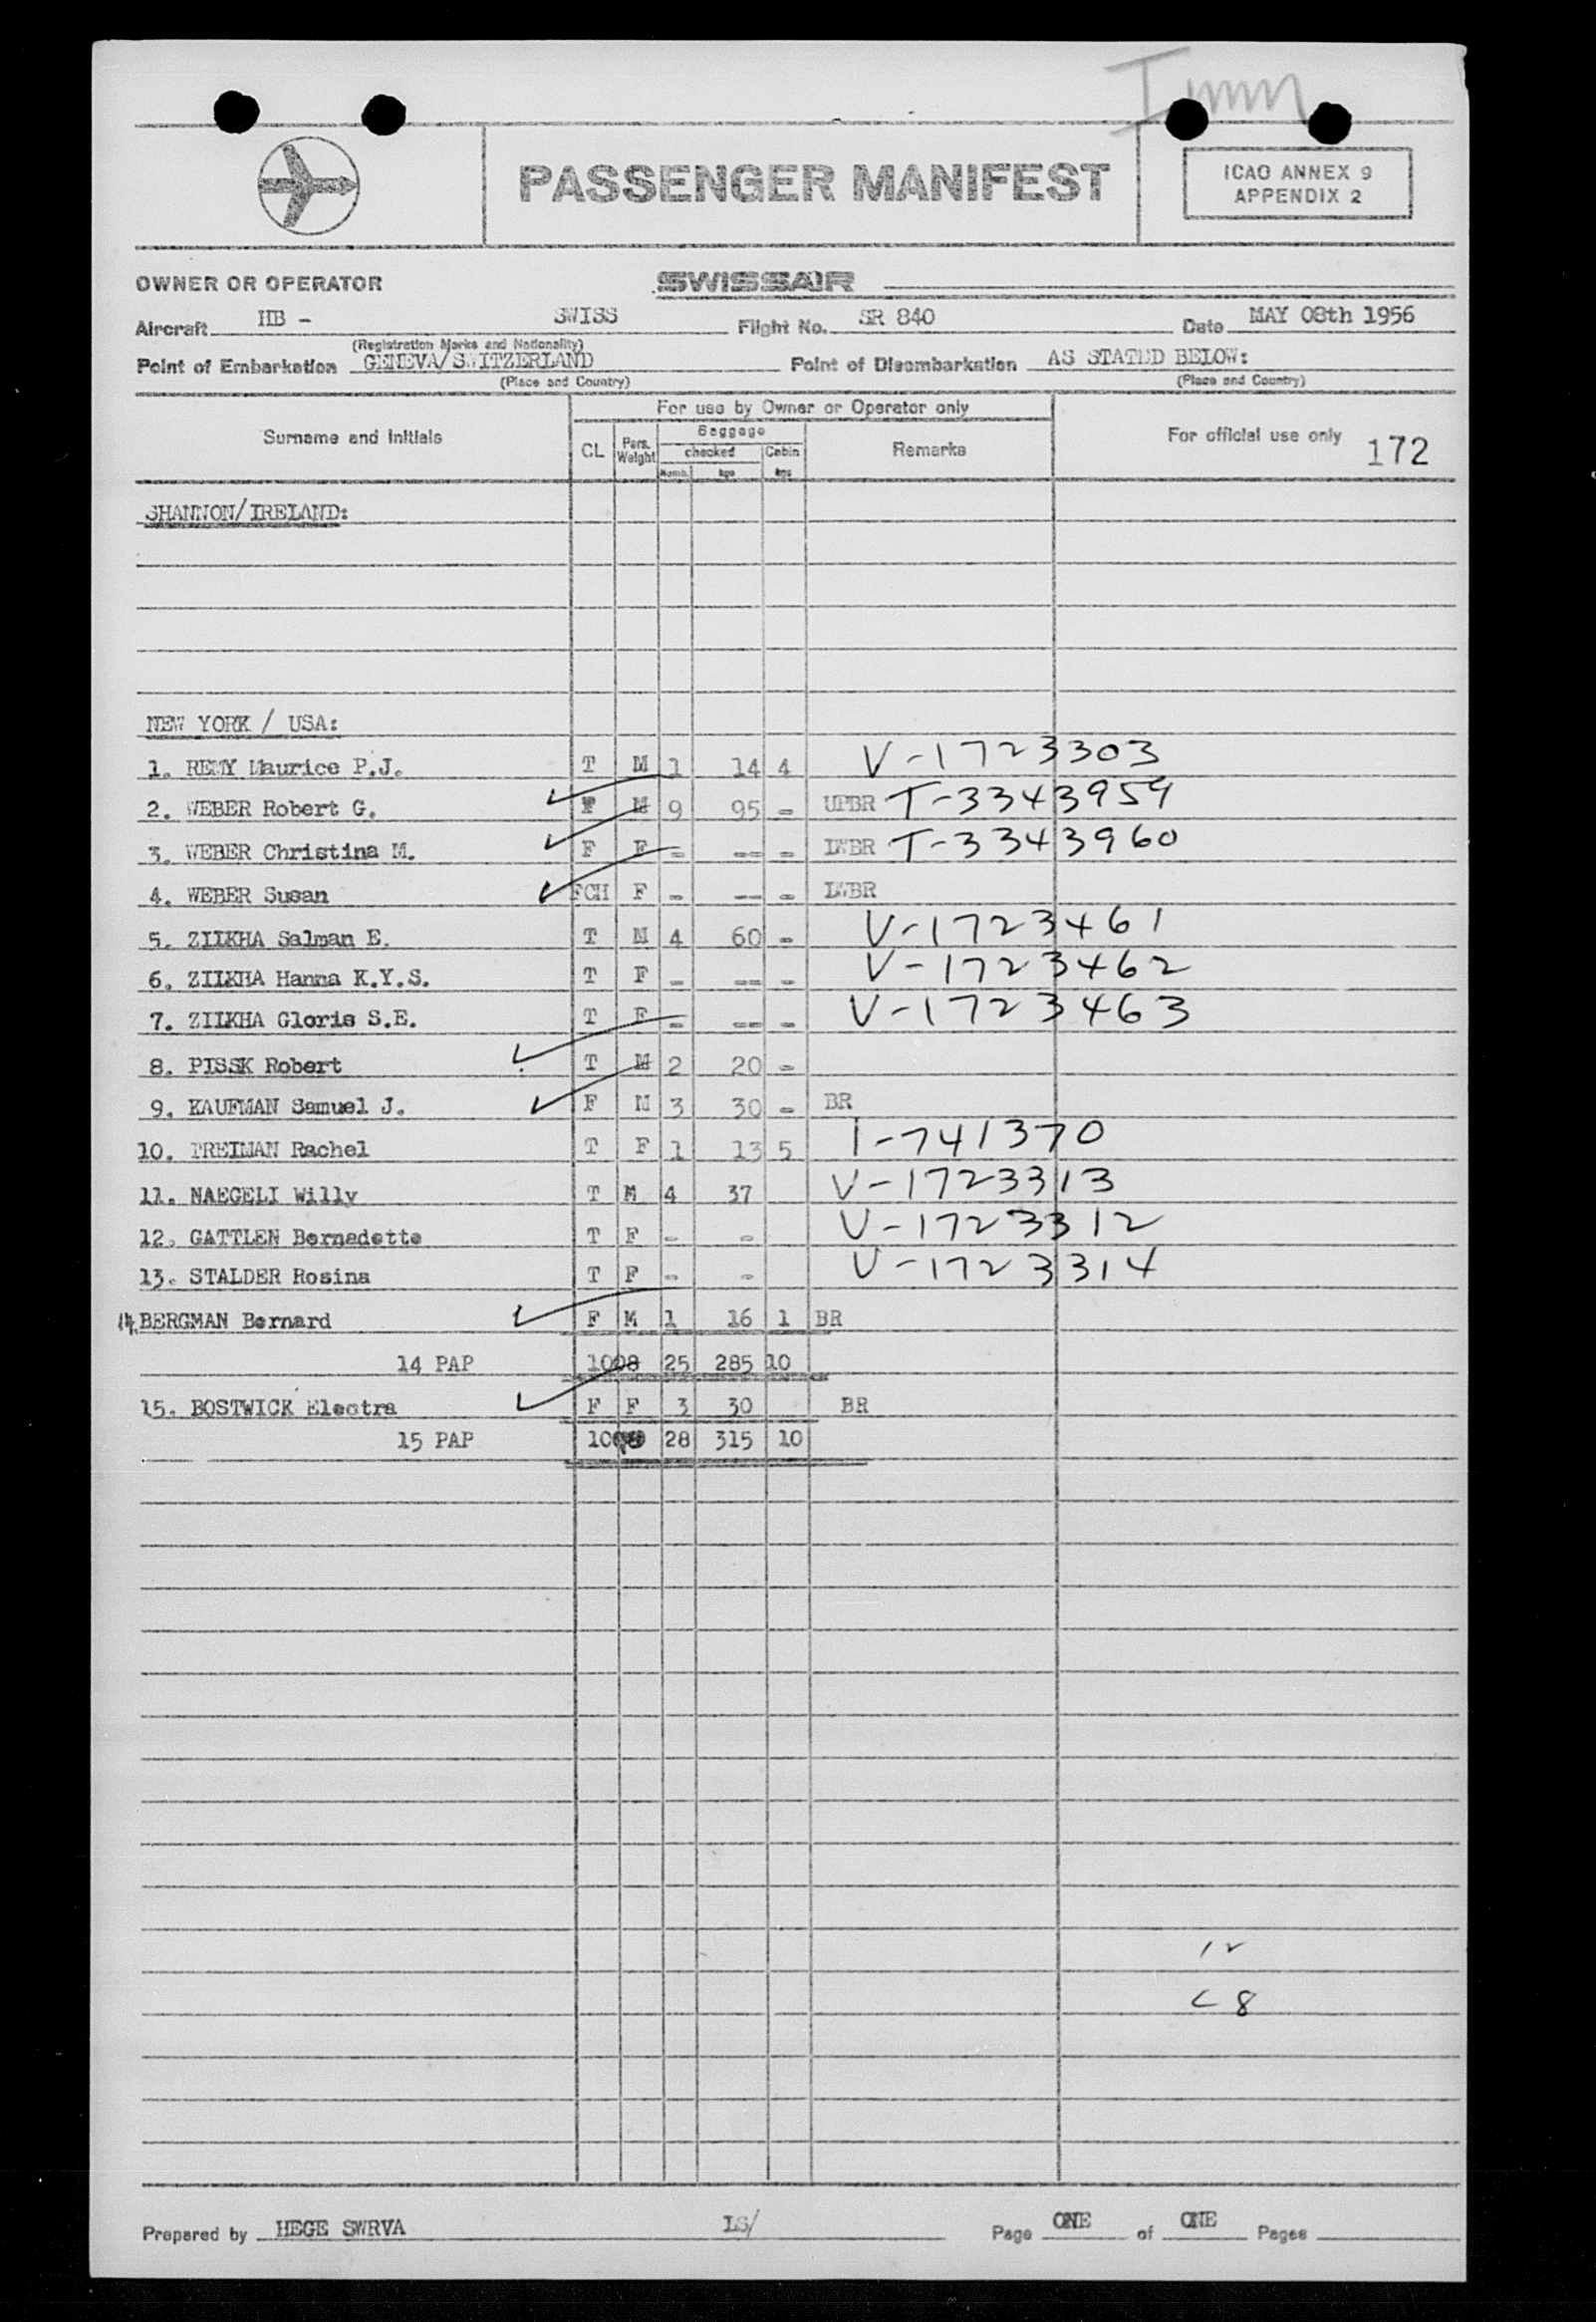 Imm
PASSENGER MANIFEST
ICAO ANNEX 9
APPENDIX 2
OWNER OR OPERATOR SWISSAIR
Aircraft HB - SWISS Flight No. SR 840 Date MAY 08th 1956
(Registration Marks and Nationality)
Point of Embarkation GENEVA/SWITZERLAND Point of Disembarkation AS STATED BELOW:
(Place and Country) (Place and Country)
For use by Owner or Operator only
Surname and Initials CL Pers. Weight Baggage checked Numb. kgs Cabin kgs Remarks For official use only 172
SHANNON/IRELAND:
NEW YORK / USA:
1. REMY Maurice P.J. T M 1 14 4 V-1723303
2. WEBER Robert G. F M 9 95 - UPBR T-3343959
3. WEBER Christina M. F F - -- - LWBR T-3343960
4. WEBER Susan FCH F - -- - LWBR
5. ZILKHA Salman E. T M 4 60 - V-1723461
6. ZILKHA Hanna K.Y.S. T F - -- - V-1723462
7. ZILKHA Gloris S.E. T F - -- - V-1723463
8. PISSK Robert T M 2 20 -
9. KAUFMAN Samuel J. F M 3 30 - BR
10. Rachel T F 1 13 5 I-741370
11. NAEGELI Willy T M 4 37 V-1723313
12. GATTLEN Bernadette T F - - V-1723312
13. STALDER Rosina T F - - V-1723314
14. BERGMAN Bernard F M 1 16 1 BR
14 PAP 1008 25 285 10
15. BOSTWICK Electra F F 3 30 BR
15 PAP 28 315 10
12
C 8
Prepared by HEGE SWRVA LS/ Page ONE of ONE Pages